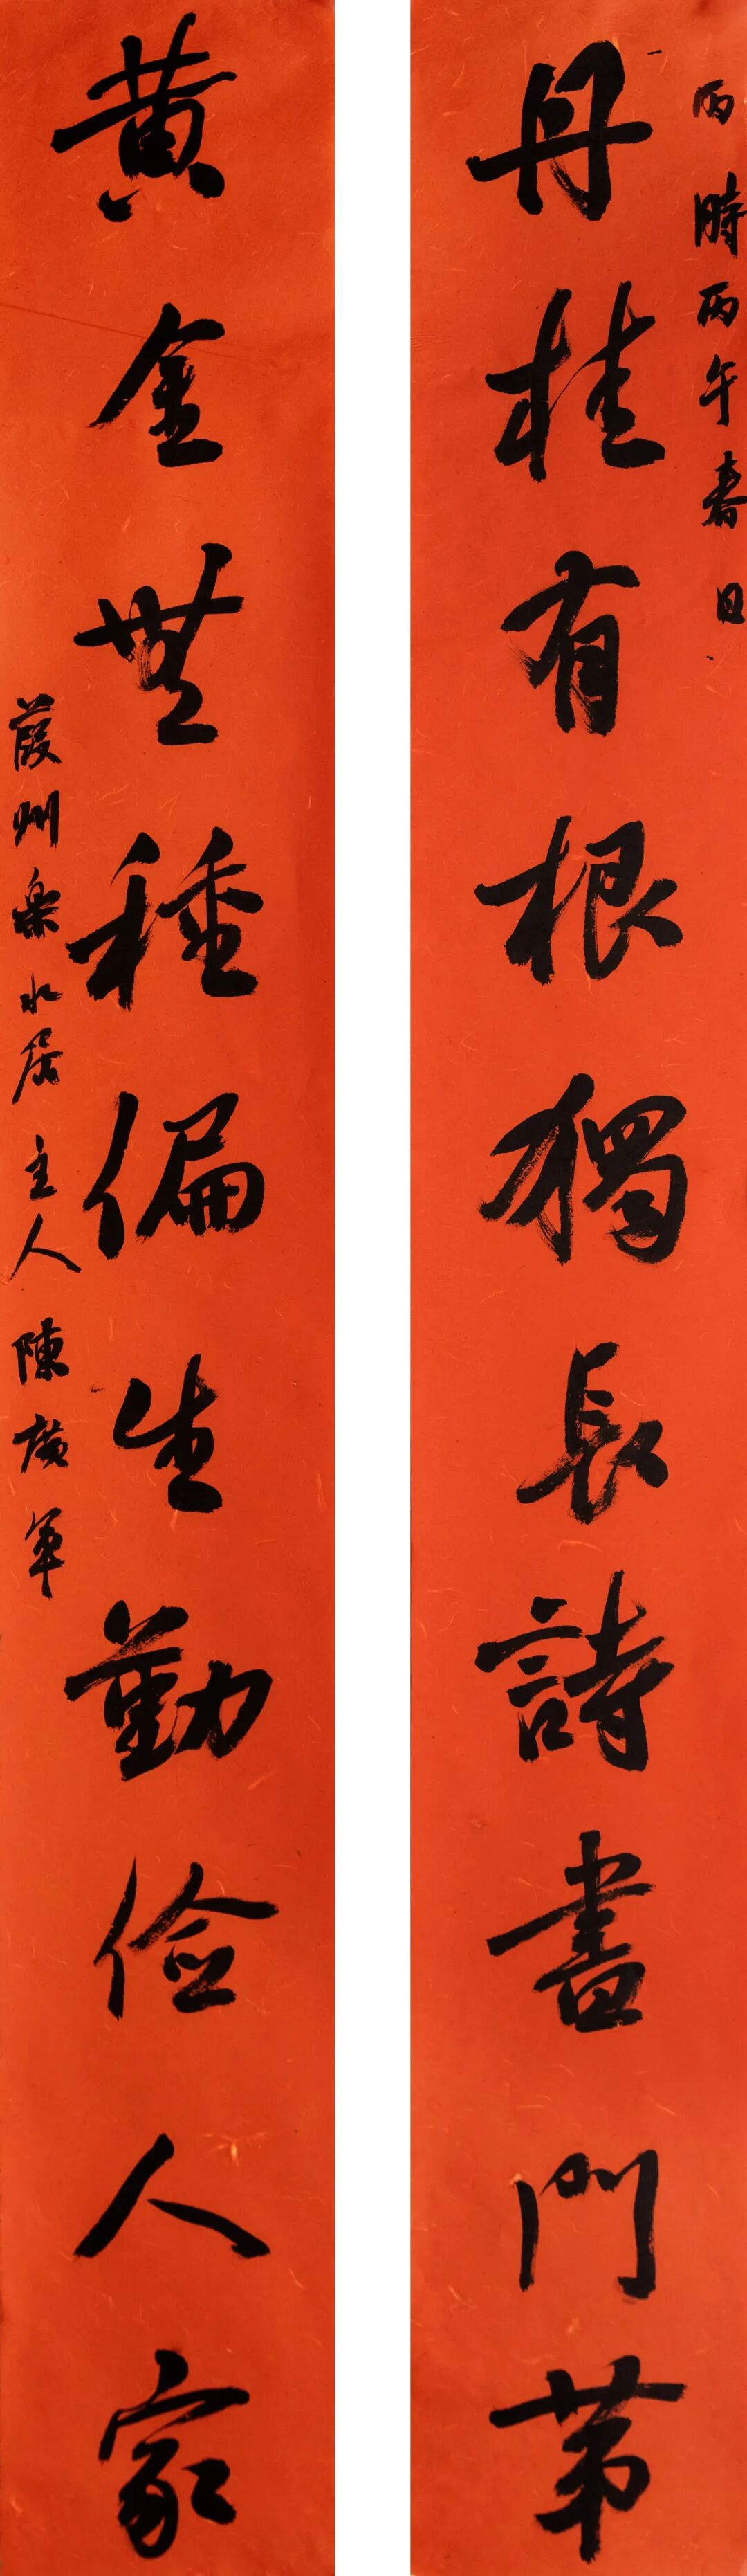 丙時丙午春日
丹桂有根獨長詩書門第
黄金無種偏生勤儉人家
葭州樂水居主人陳廣軍